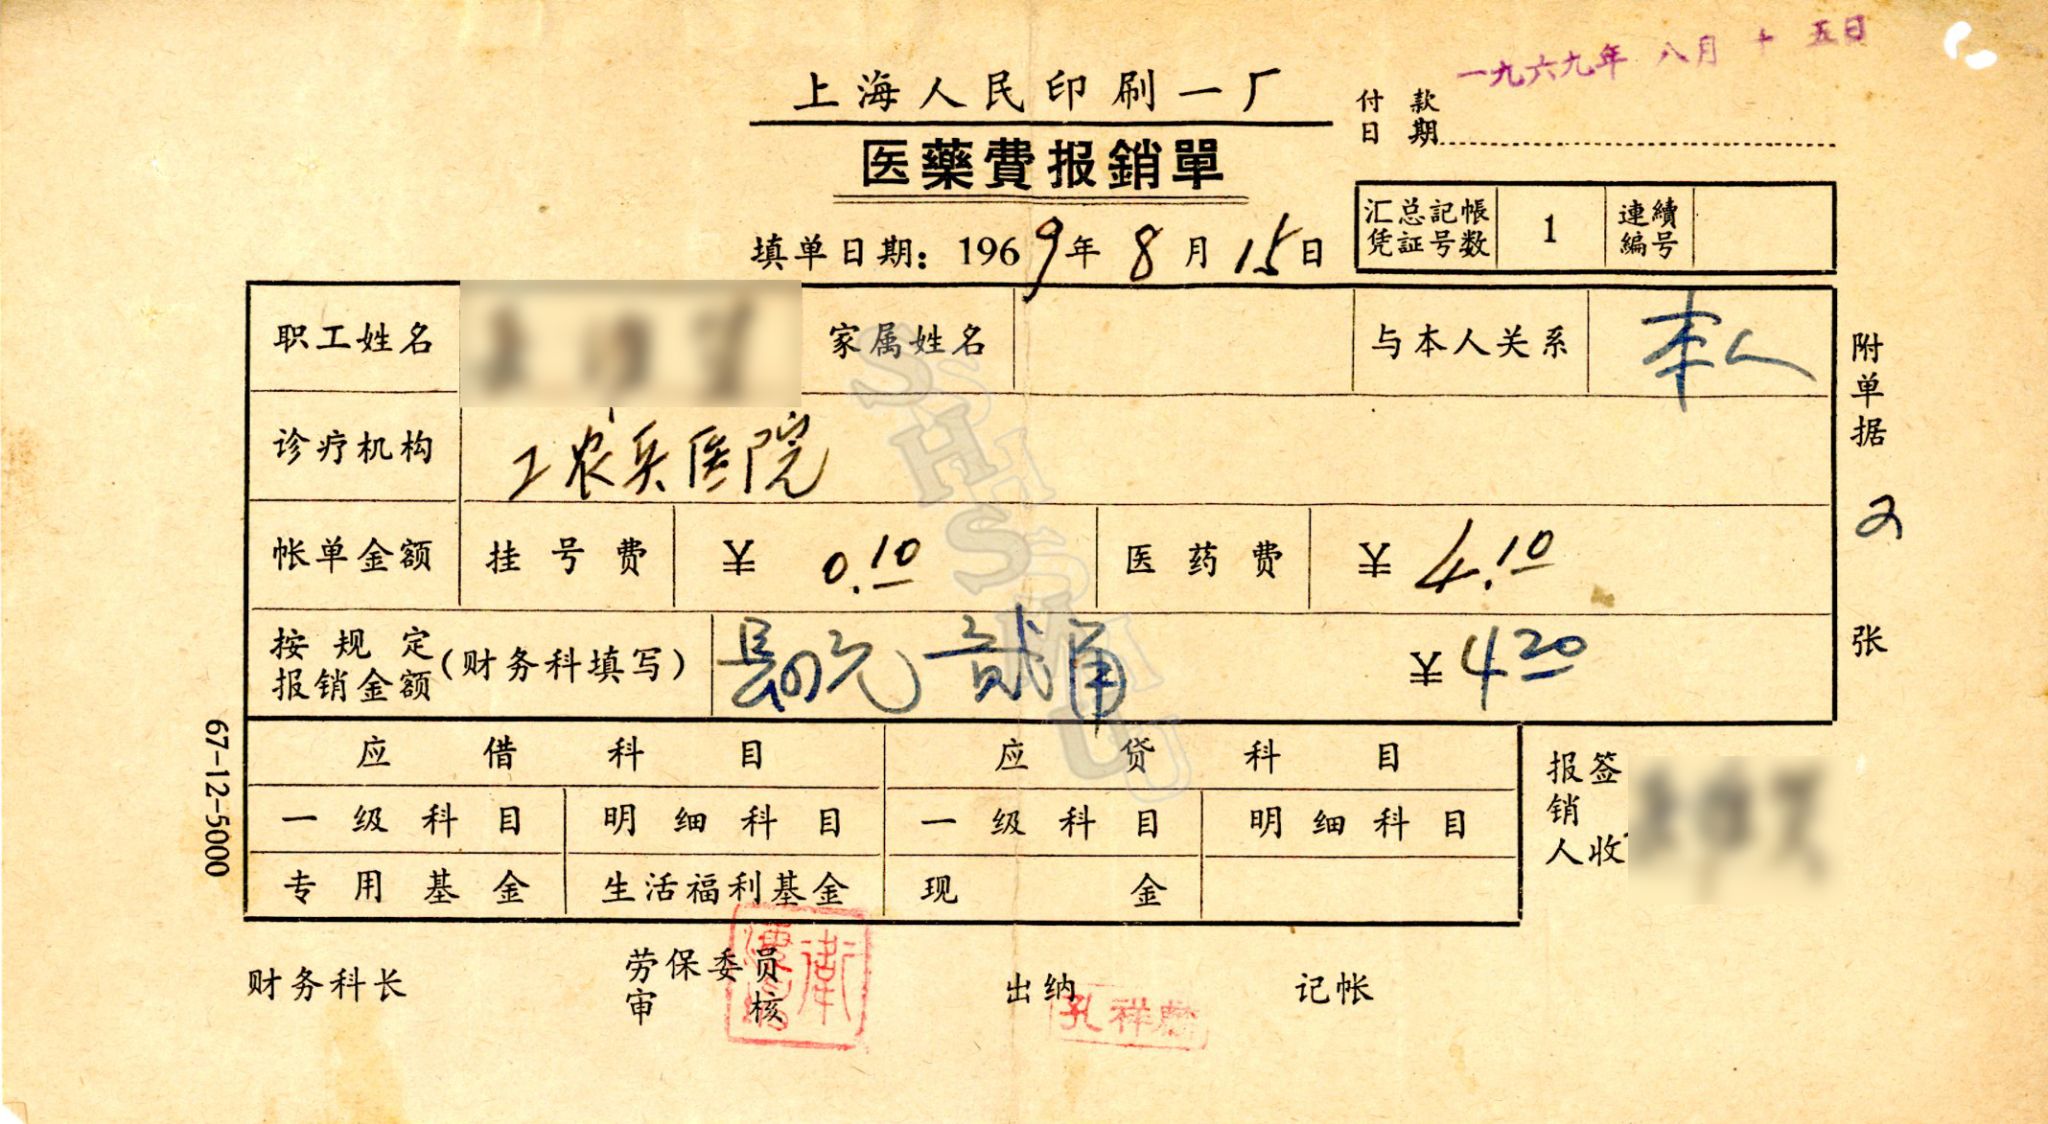 一九六九年 八月 十五日
上海人民印刷一厂
付款日期
医藥費报銷單
填单日期：1969年8月15日
汇总記帳凭証号数 1 連續編号
职工姓名 家属姓名 与本人关系 本人
诊疗机构 工农兵医院
帐单金额 挂号费 ¥ 0.10 医药费 ¥ 4.10
按规定报销金额（财务科填写） 肆元贰角 ¥ 4.20
附单据 2 张
应借科目 应贷科目
一级科目 明细科目 一级科目 明细科目
专用基金 生活福利基金 现金
报销人签收
67-12-5000
财务科长 劳保委员审核 出纳 记帐
孔祥
SHSMU